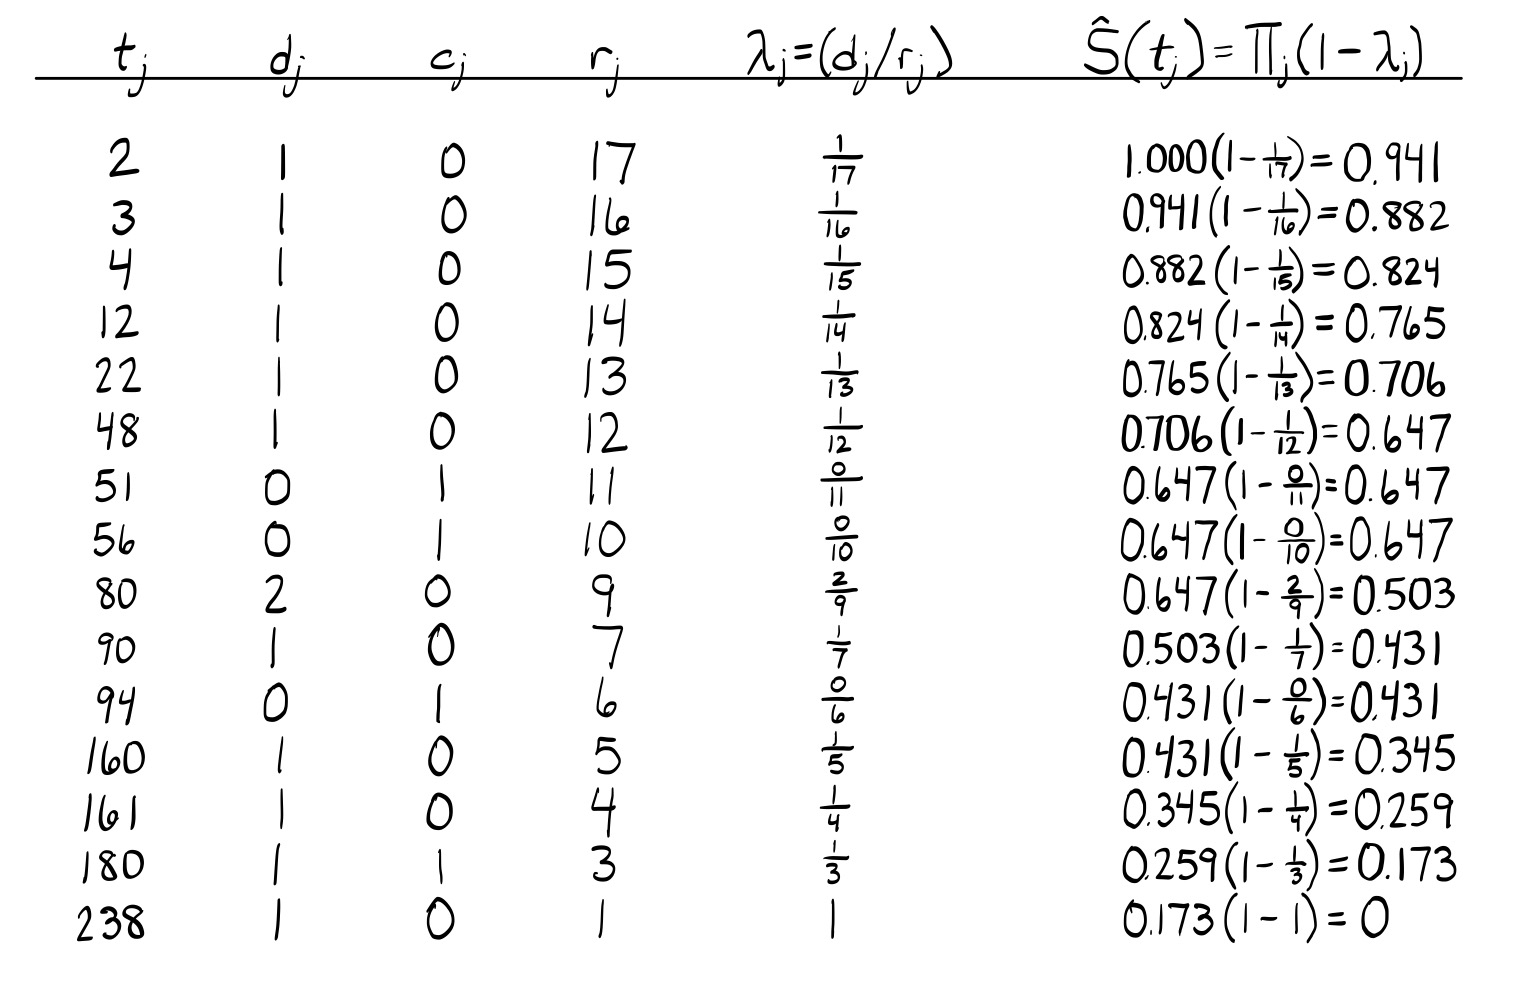 tj dj cj rj λj=(dj/rj) Ŝ(tj)=∏j(1-λj)
2 1 0 17 1/17 1.000(1-1/17)=0.941
3 1 0 16 1/16 0.941(1-1/16)=0.882
4 1 0 15 1/15 0.882(1-1/15)=0.824
12 1 0 14 1/14 0.824(1-1/14)=0.765
22 1 0 13 1/13 0.765(1-1/13)=0.706
48 1 0 12 1/12 0.706(1-1/12)=0.647
51 0 1 11 0/11 0.647(1-0/11)=0.647
56 0 1 10 0/10 0.647(1-0/10)=0.647
80 2 0 9 2/9 0.647(1-2/9)=0.503
90 1 0 7 1/7 0.503(1-1/7)=0.431
94 0 1 6 0/6 0.431(1-0/6)=0.431
160 1 0 5 1/5 0.431(1-1/5)=0.345
161 1 0 4 1/4 0.345(1-1/4)=0.259
180 1 1 3 1/3 0.259(1-1/3)=0.173
238 1 0 1 1 0.173(1-1)=0